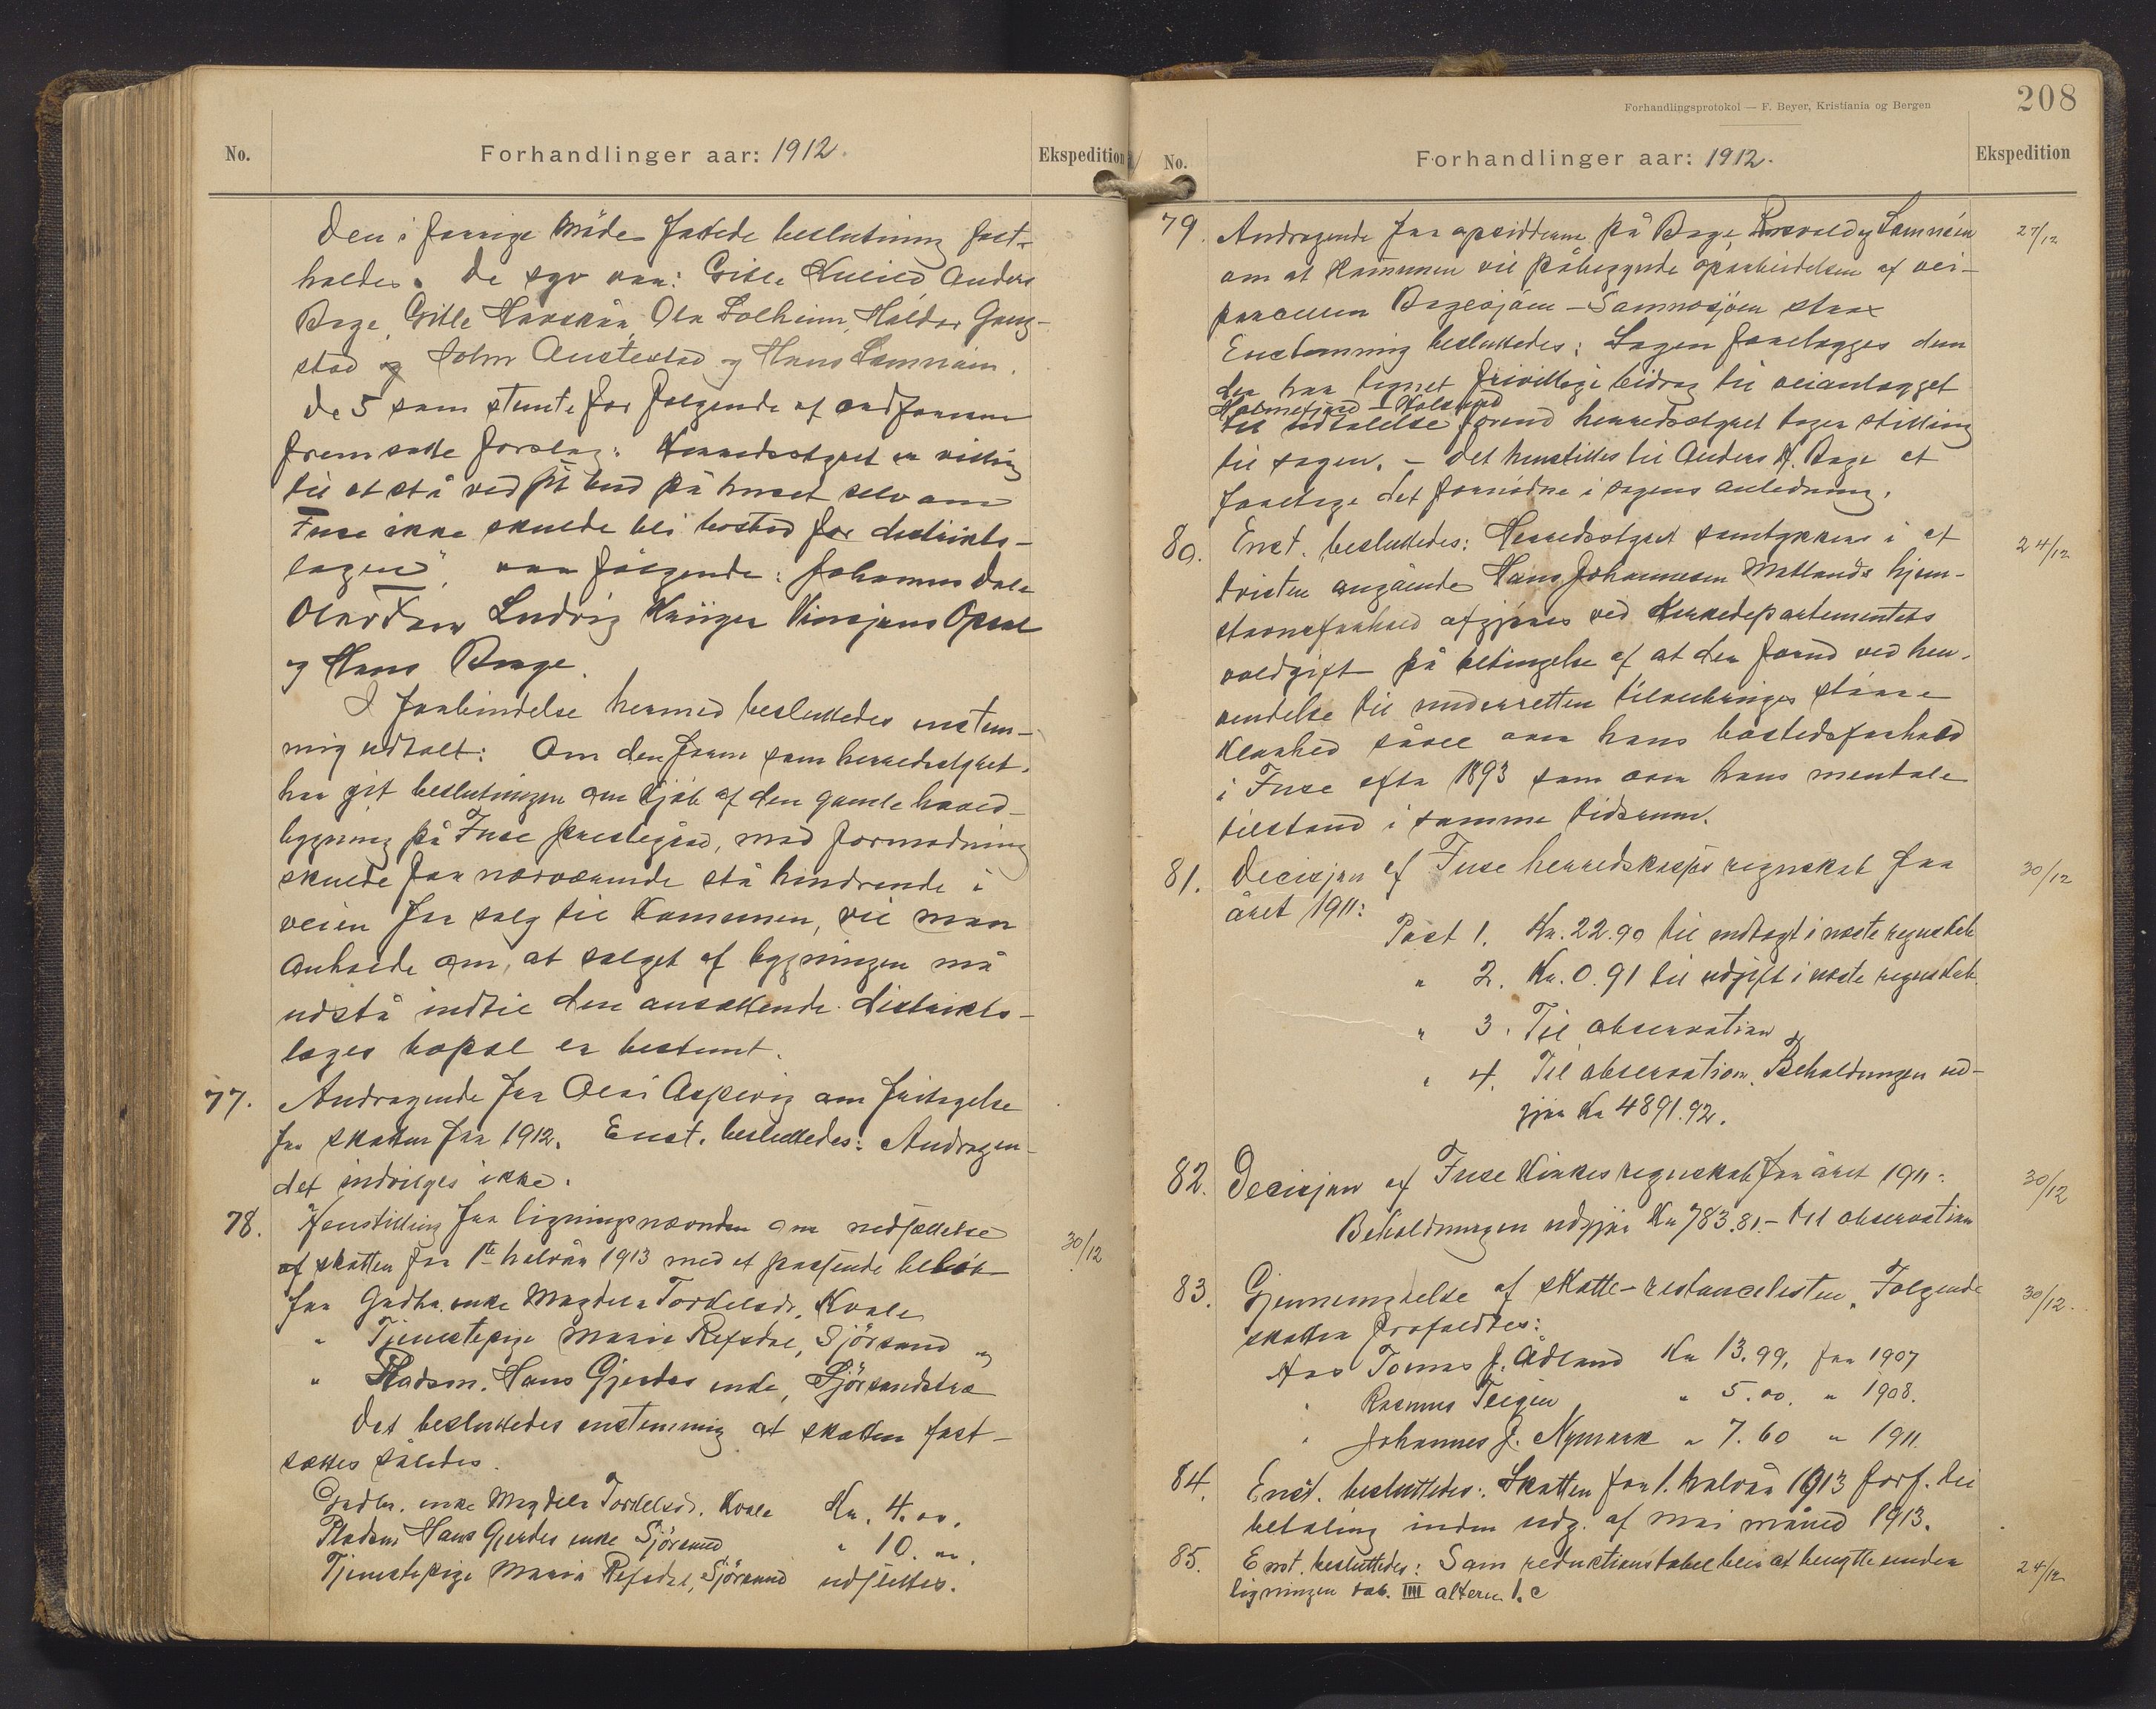 No.
Forhandlinger aar: 1912.
Ekspedition
Den i forrige møde fattede beslutning fast-
holdes. De syv var: Gitle Kuield Anders
Boge, Gitle Havskår, Ola Solheim, Haldor Gaug-
stad og John Austestad og Hans Samnøen.
De 5 som stemte for følgende af ordføreren
fremsatte forslag: Herredsstyret er villig
til at stå ved sit bud på huset selv om
Fuse ikke skulde bli bosted for distrikts-
lægen", var følgende: Johannes Dale
Olav Fuse Ludvig Krüger Vinsjans Opsal
og Hans Boge.
I forbindelse hermed besluttedes enstem-
mig udtalt: Om den form som herredsstyret
har git beslutningen om kjøb af den gamle hoved-
bygning på Fuse prestegård, mod formodning
skulde for nærværende stå hindrende i
veien for salg til kommunen, vil man
anholde om, at salget af bygningen må
udstå indtil den ansættende distrikts-
læges bopæl er bestemt.
77. Andragende fra Olai Aspevig om fritagelse
for skatten for 1912. Enst. besluttedes: Andragen-
det indvilges ikke.
78. Henstilling fra ligningsnævnden om nedsættelse 30/12
af skatten for 1ste halvår 1913 med et passende beløb
for Gadbr. enke Magdela Torkelsdr. Kvale
" Tjenestepige Maria Refsdal, Sjørsand og
" Pladsm. Hans Gjerdes enke, Sjørsandstræ
Det besluttedes enstemmig at skatten fast-
sættes således.
Gadbr. enke Magdela Torkelsd. Kvale Kr. 4.00.
Pladsm Hans Gjerdes enke Sjørsand " 10. "
Tjenestepige Maria Refsdal, Sjørsand udslettes.
Forhandlingsprotokol — F. Beyer, Kristiania og Bergen
208
No.
Forhandlinger aar: 1912.
Ekspedition
79. Andragende fra opsidderne på Boge, Rosvold og Samnøen 27/12
om at kommunen vil påbegynde oparbeidelsen af vei-
parcellen Bogesjøen - Samnøsjøen strax
Enstemmig besluttedes: Sagen forelægges dem
der har tegnet frivillige bidrag til veianlægget
Holmefjord - Kolsund
til udtalelse førend herredsstyret tager stilling
til sagen. - Det henstilles til Anders H. Boge at
foretage det fornødne i sagens anledning.
80. Enst. besluttedes: Herredsstyret samtykker i at 24/12
tvisten angående Hans Johannesen Matlands hjem-
stavnsforhold afgjøres ved Kirkedepartementets
voldgift på betingelse af at der førend ved hen-
vendelse til underretten tilveiebringes større
klarhed såvel om hans bostedsforhold
i Fuse efter 1893 som om hans mentale
tilstand i samme tidsrum.
81. Decisjon af Fuse herredskasses regnskab for 30/12
året 1911:
Post 1. Kr. 22.90 til indtægt i næste regnskab
" 2. Kr. 0.91 til udgift i næste regnskab.
" 3. Til observation
" 4. Til observation. Beholdningen ud-
gjør Kr 4891.92.
82. Decisjon af Fuse Kirkes regnskab for året 1911: 30/12
Beholdningen udgjør Kr 783.81.- til observation
83. Gjennemgåelse af skatte-restancelisten. Følgende 30/12.
skatter frafaldtes:
Hos Tomas J. Ådland Kr 13.99. for 1907
" Rasmus Teigen " 5.00. " 1908.
" Johannes J. Nymark " 7.60 " 1911.
84. Enst. besluttedes: Skatten for 1. halvår 1913 forf. til
betaling inden udg. af mai måned 1913.
85. Enst. besluttedes: Som reductionstabel blir at benytte under 24/12
ligningen tab. IIII altern 1.c